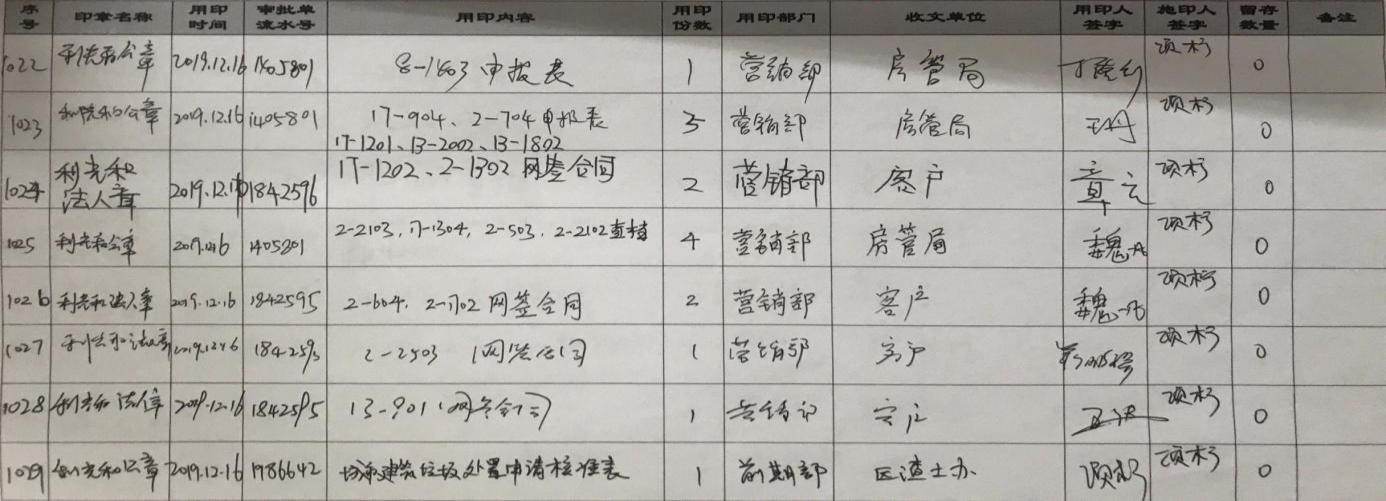 序号 印章名称 用印时间 审批单流水号 用印内容 用印份数 用印部门 收文单位 用印人签字 施印人签字 留存数量 备注
1022 利光和公章 2019.12.16 1405801 8-1803 申报表 1 营销部 房管局 项杉 0
1023 利光和公章 2019.12.16 1405801 17-904、2-704申报表 17-1201、13-2002、13-1802 5 营销部 房管局 王丹 项杉 0
1024 利光和法人章 2019.12.16 1842596 17-1202、2-1302 网签合同 2 营销部 客户 章云 项杉 0
1025 利光和公章 1405801 2-2103, 17-1304, 2-503, 2-2102查档 4 营销部 房管局 魏 项杉 0
1026 利光和法人章 2019.12.16 1842595 2-604, 2-1702 网签合同 2 营销部 客户 魏 项杉 0
1027 利光和法人章 2019.12.16 184259 2-2503 网签合同 1 营销部 客户 项杉 0
1028 利光和法人章 2019.12.16 1842595 13-901 网签合同 1 营销部 客户 项杉 0
1029 利光和公章 2019.12.16 1986642 建筑垃圾处置申请核准表 1 前期部 区渣土办 项杉 项杉 0